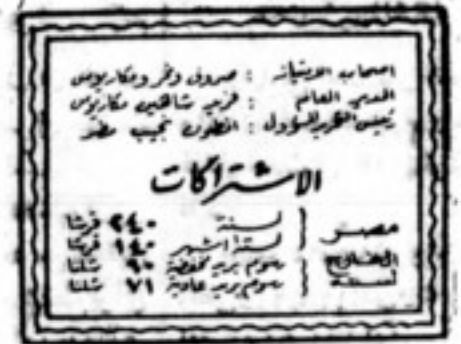 اصحاب الامتياز : صروف ونمر ومكاريوس
المدير العام : فريد شاهين مكاريوس
رئيس التحرير المسؤول : انطون نجيب مطر
الاشتراكات
مصر
لسنة ٢٤٠ قرشا
لستة اشهر ١٤٠ قرشا
الخارج
لسنة
رسوم بريد مخفضة ٩٠ شلنا
رسوم بريد عادية ٧١ شلنا